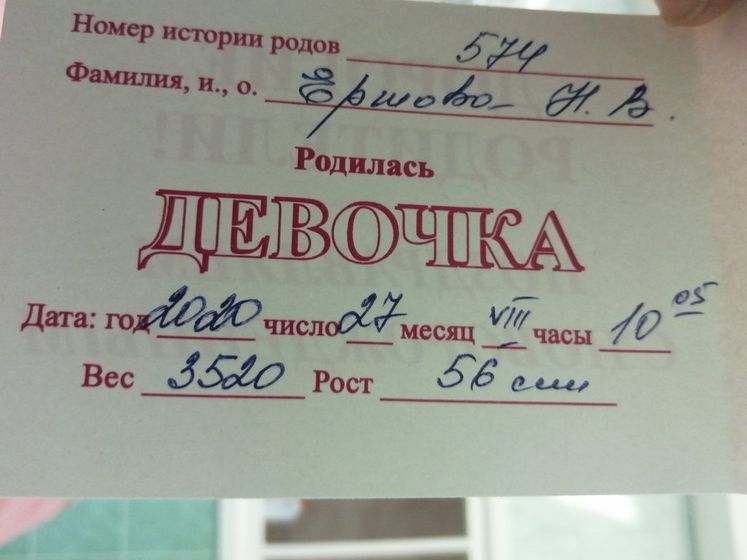 Номер истории родов 574
Фамилия, и., о. Ершова Н. В.
Родилась
ДЕВОЧКА
Дата: год 2020 число 27 месяц VIII часы 10 05
Вес 3520 Рост 56 см